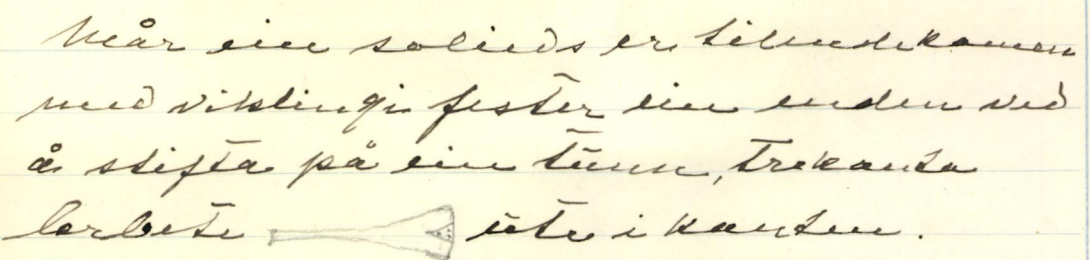 Når ein soleids er tilendekomen
med viklingi fester ein enden ved
å stifta på ein tunn, trekanta
lerbete ute i kanten.